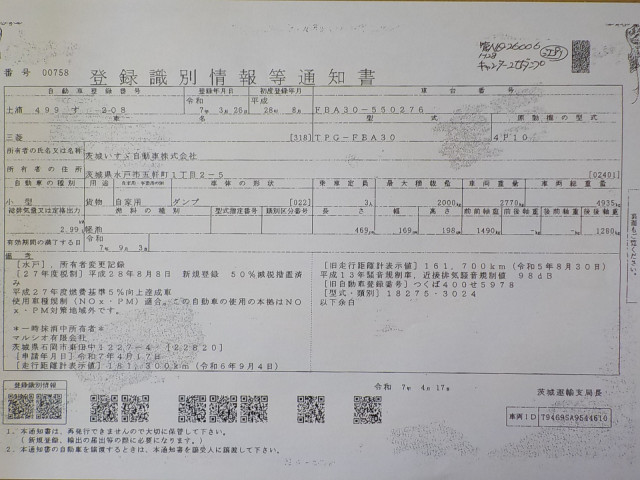 番号 00758
登録識別情報等通知書
自動車登録番号 登録年月日 初度登録年月 車台番号
土浦 499 す ・208 令和 7年 3月26日 平成 28年 8月 FBA30-550276
車名 型式 原動機の型式
三菱 [318] TPG-FBA30 4P10
所有者の氏名又は名称 茨城いすゞ自動車株式会社
所有者の住所 茨城県水戸市五軒町1丁目2-5 [02401]
自動車の種別 用途 自家用・事業用の別 車体の形状 乗車定員 最大積載量 車両重量 車両総重量
小型 貨物 自家用 ダンプ [022] 3人 2000kg 2770kg 4935kg
総排気量又は定格出力 燃料の種類 型式指定番号 類別区分番号 長さ 幅 高さ 前前軸重 前後軸重 後前軸重 後後軸重
2.99 軽油 469cm 169cm 198cm 1490kg -kg -kg 1280kg
有効期間の満了する日 令和 7年 9月 3日
備考
[水戸],所有者変更記録
[27年度税制]平成28年8月8日 新規登録 50%減税措置済み
平成27年度燃費基準5%向上達成車
使用車種規制(NOx・PM)適合。この自動車の使用の本拠はNOx・PM対策地域外です。
*一時抹消中所有者*
マルシオ有限会社
茨城県石岡市東田中1227-4 [22820]
[申請年月日]令和7年4月17日
[走行距離計表示値]161,300km(令和6年9月4日)
[旧走行距離計表示値]161,700km(令和5年8月30日)
平成13年騒音規制車,近接排気騒音規制値 98dB
[旧自動車登録番号]つくば400せ5978
[型式・類別]18275-3024
以下余白
登録識別情報
令和 7年 4月17日
茨城運輸支局長
車両ID T9469SA9544610
1.本通知書は、再発行できませんので大切に保管して下さい。
(新規登録、輸出の届出等の際に必要になります。)
2.本通知書の自動車を譲渡するときは、本通知書を譲受人に譲渡して下さい。